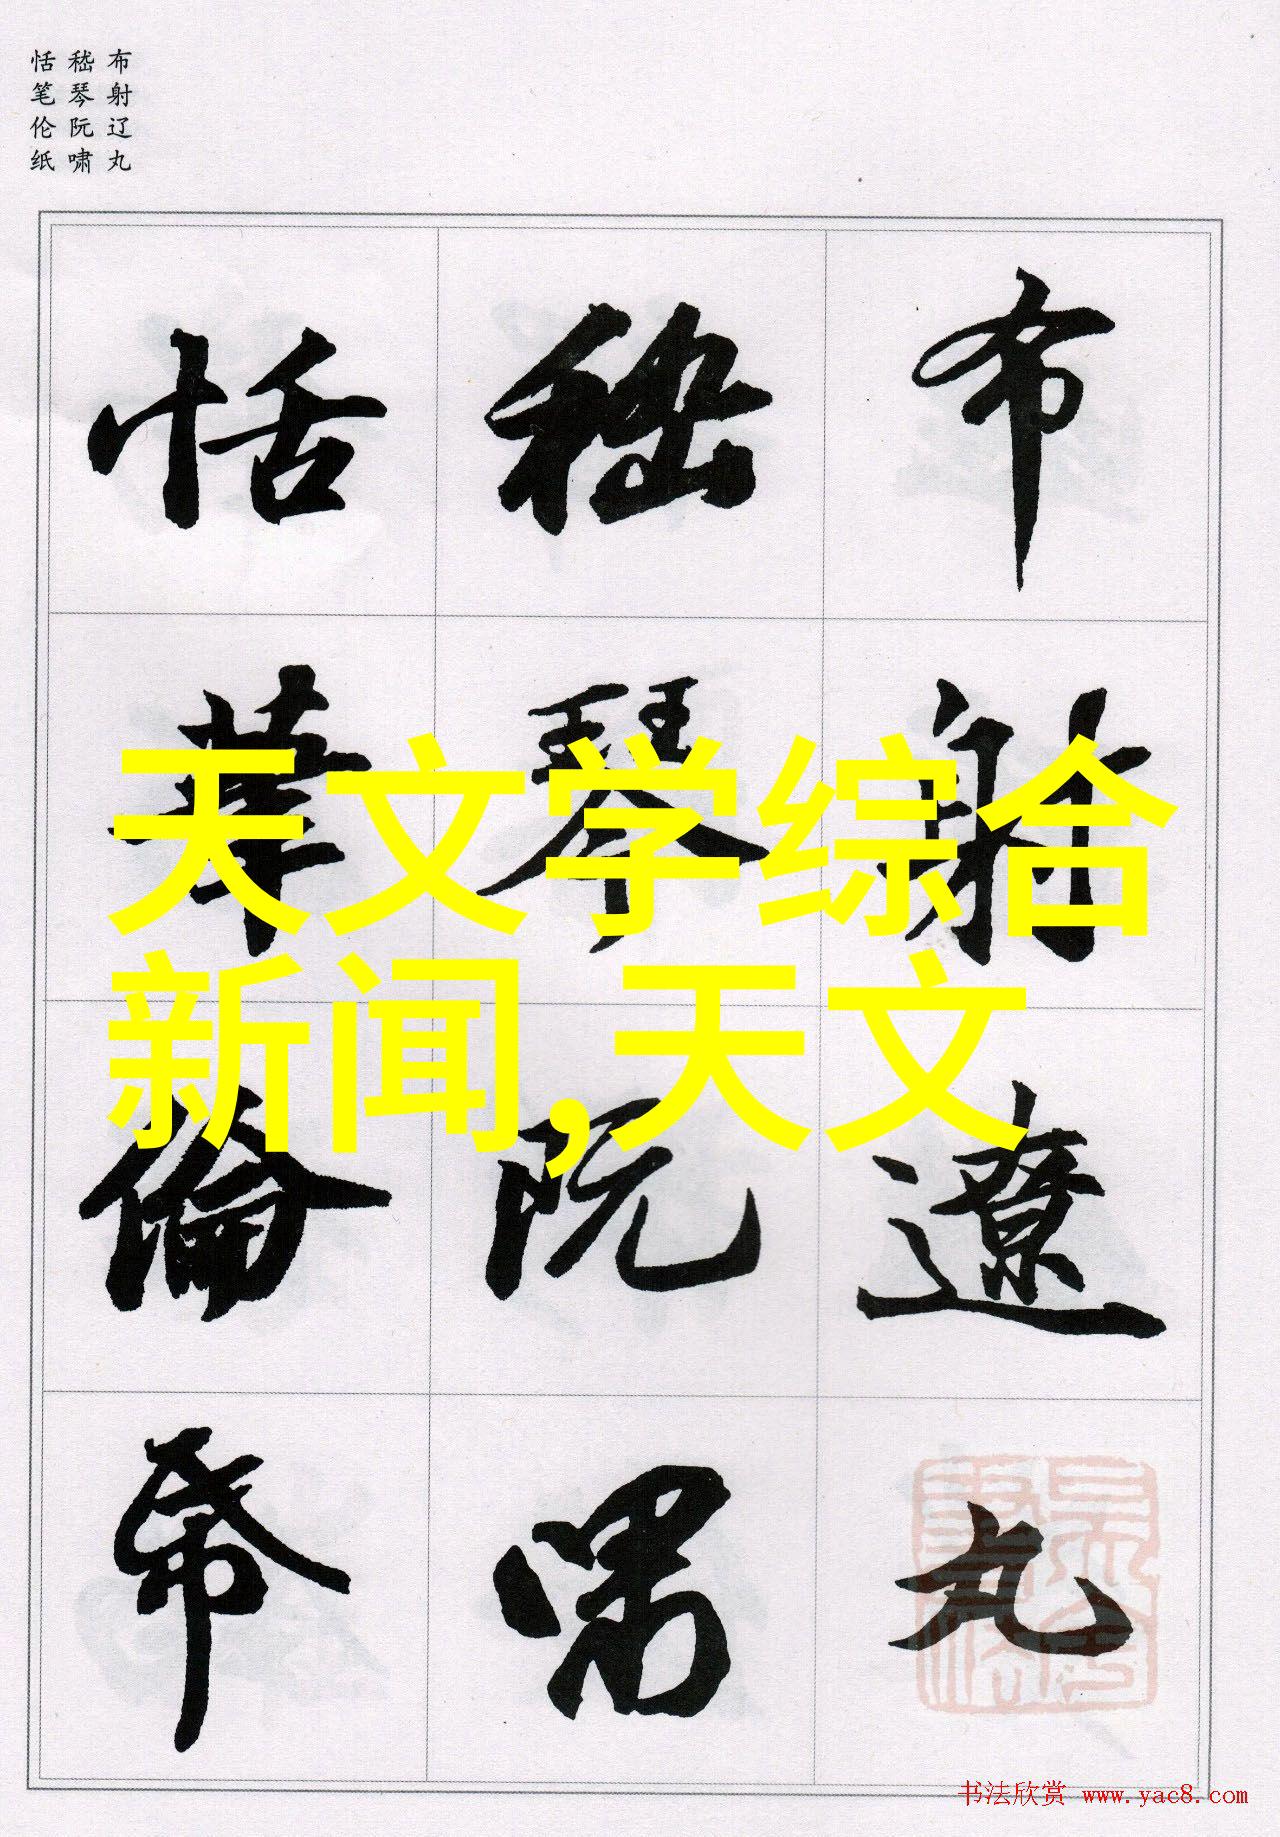 布射辽丸
嵇琴阮啸
恬笔伦纸
布射遼丸
嵇琴阮嘯
恬筆倫帋
天文学综合
新闻,天文
书法欣赏 www.yac8.com